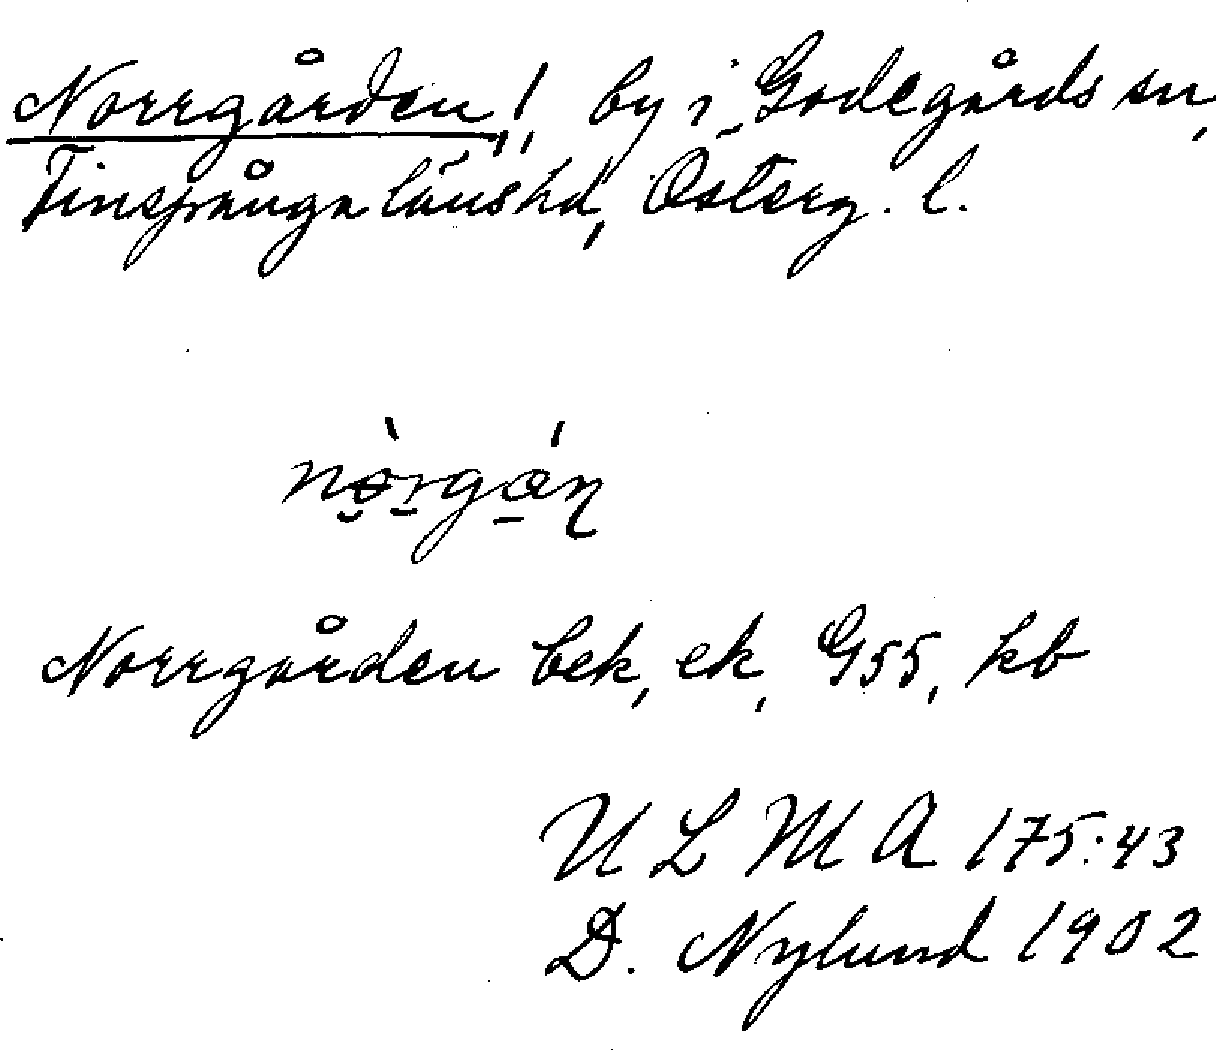 Norrgården!, by i Godegårds sn,
Finspånga läns hd, Österg. l.
Norrgården bek, ek, G55, kb
U L M A 175:43
D. Nylund 1902